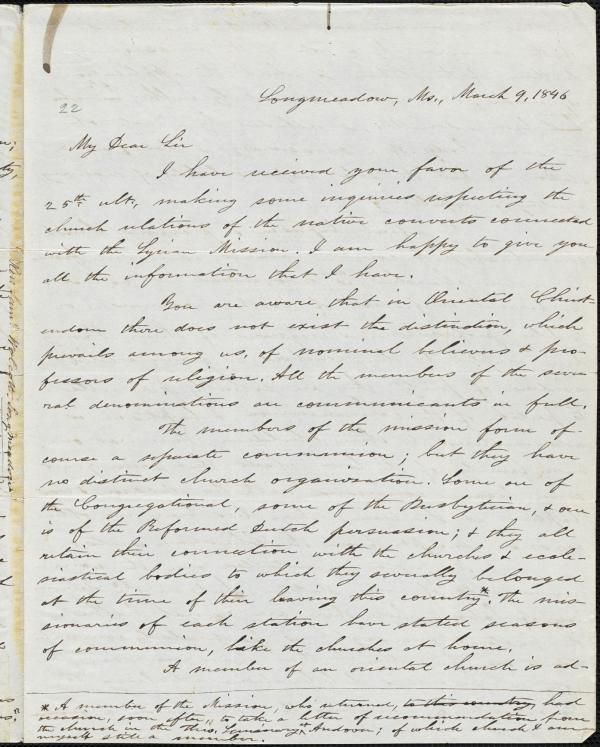 22
Longmeadow, Ms., March 9, 1846
My Dear Sir
I have received your favor of the
25th ult, making some inquiries respecting the
church relations of the native converts connected
with the Syrian Mission. I am happy to give you
all the information that I have.
You are aware that in Oriental Christ-
endom there does not exist the distinction, which
prevails among us, of nominal believers & pro-
fessors of religion. All the members of the seve-
ral denominations are communicants in full.
The members of the mission form of
course a separate communion; but they have
no distinct church organization. Some are of
the Congregational, some of the Presbyterian, & one
is of the Reformed Dutch persuasion; & they all
retain their connection with the churches & eccle-
siastical bodies to which they severally belonged
at the time of their leaving this country*. The mis-
sionaries of each station have stated seasons
of communion, like the churches at home.
A member of an oriental church is ad-
* A member of the Mission, who returned, to this country, had
occasion, soon after, to take a letter of recommendation from
the church in the Theo. Seminary, Andover; of which church I am
myself still a member.